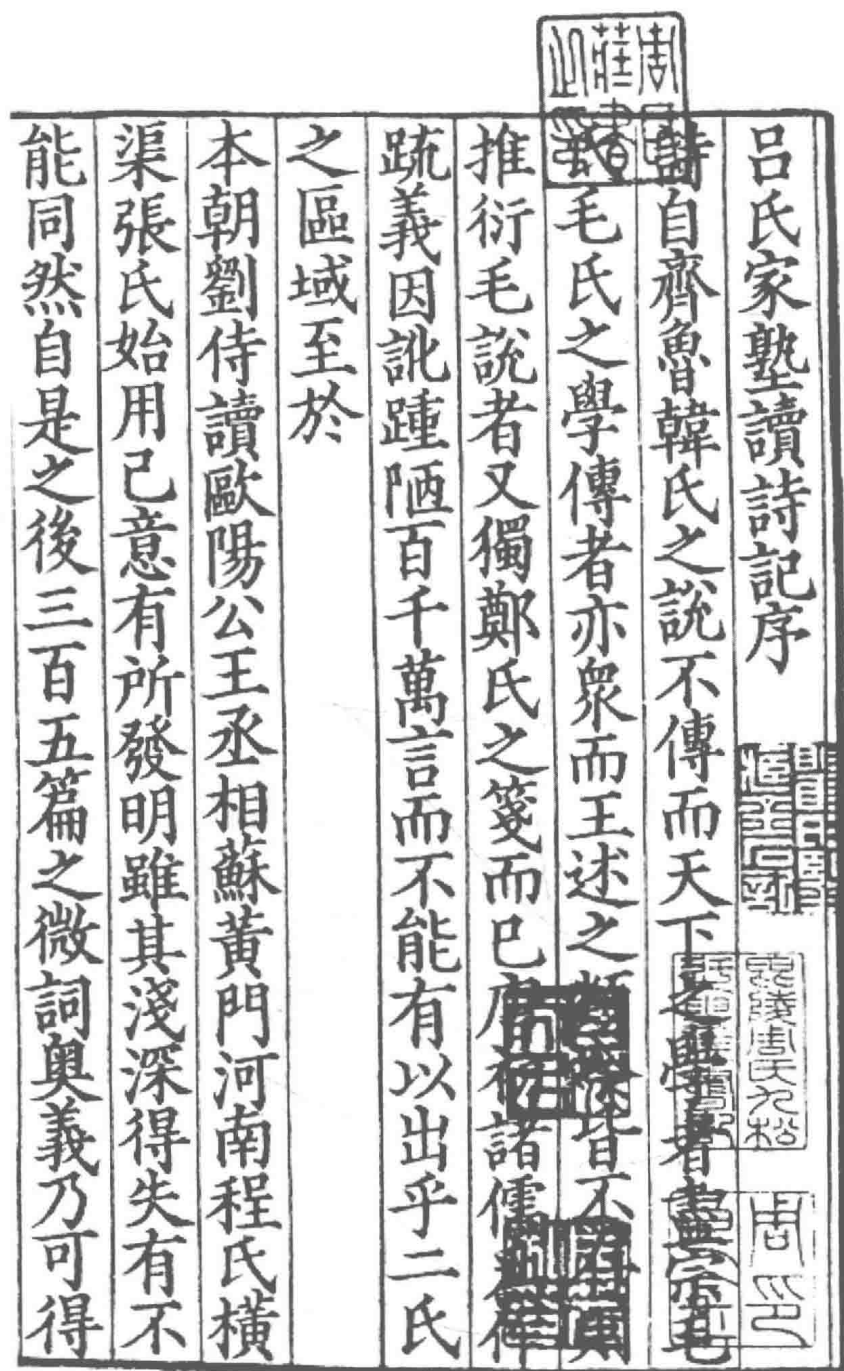 吕氏家塾讀詩記序
詩自齊魯韓氏之說不傳而天下之學者盡宗毛
氏毛氏之學傳者亦衆而王述之類今皆不存
推衍毛說者又獨鄭氏之箋而已唐初諸儒爲作
䟽義因訛踵陋百千萬言而不能有以出乎二氏
之區域至於
本朝劉侍讀歐陽公王丞相蘇黃門河南程氏橫
渠張氏始用己意有所發明雖其淺深得失有不
能同然自是之後三百五篇之微詞奧義乃可得
周印